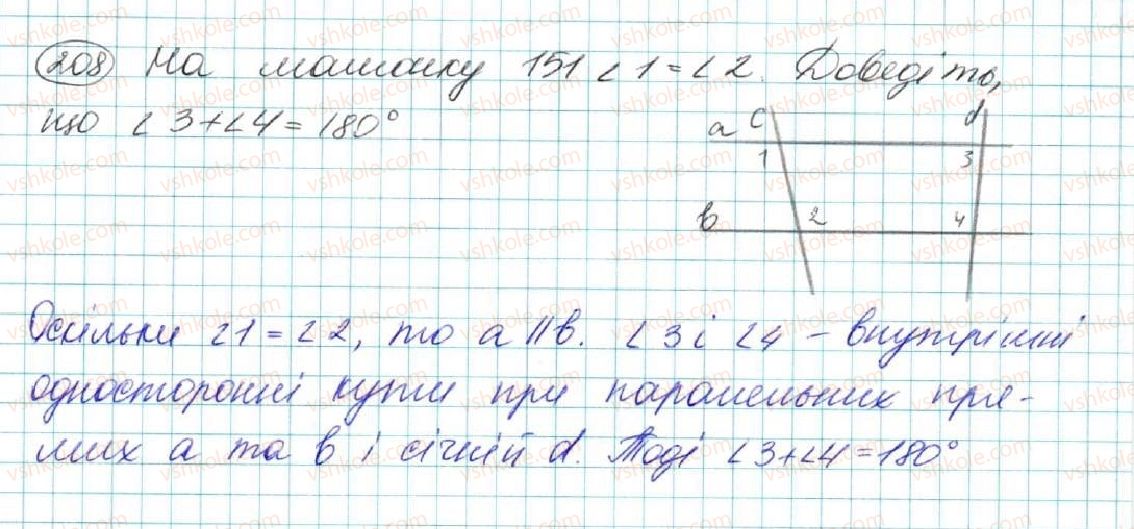 208 На малюнку 151 ∠1=∠2. Доведіть,
що ∠3+∠4=180°
a c d
1 3
b 2 4
Оскільки ∠1=∠2, то a||b. ∠3 і ∠4 – внутрішні
односторонні кути при паралельних пря-
мих a та b і січній d. Тоді ∠3+∠4=180°